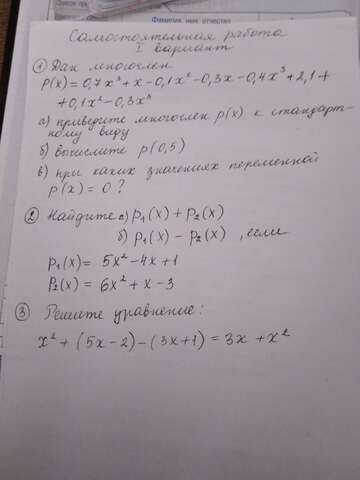 Фамилия, имя, отчество
Самостоятельная работа
I вариант
① Дан многочлен
P(x)=0,7x³+x-0,1x²-0,3x-0,4x³+2,1+
+0,1x²-0,3x³
а) приведите многочлен p(x) к стандарт-
ному виду
б) вычислите p(0,5)
в) при каких значениях переменной
p(x)=0?
② Найдите а) p₁(x)+p₂(x)
б) p₁(x)-p₂(x), если
p₁(x)= 5x²-4x+1
p₂(x)= 6x²+x-3
③ Решите уравнение:
x²+(5x-2)-(3x+1)=3x+x²